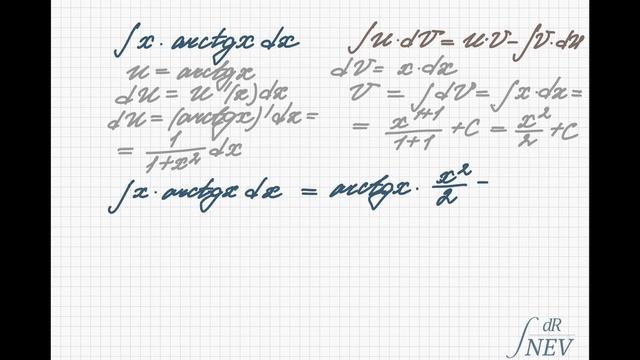 ∫x · arctgx dx
u = arctgx
du = u'(x)dx
du = (arctgx)'dx =
= 1/(1+x²) dx
∫u·dv = u·v-∫v·du
dv = x·dx
v = ∫dv = ∫x·dx =
= x¹⁺¹/(1+1) + C = x²/2 + C
∫x · arctgx dx = arctgx · x²/2 -
∫ dR
NEV